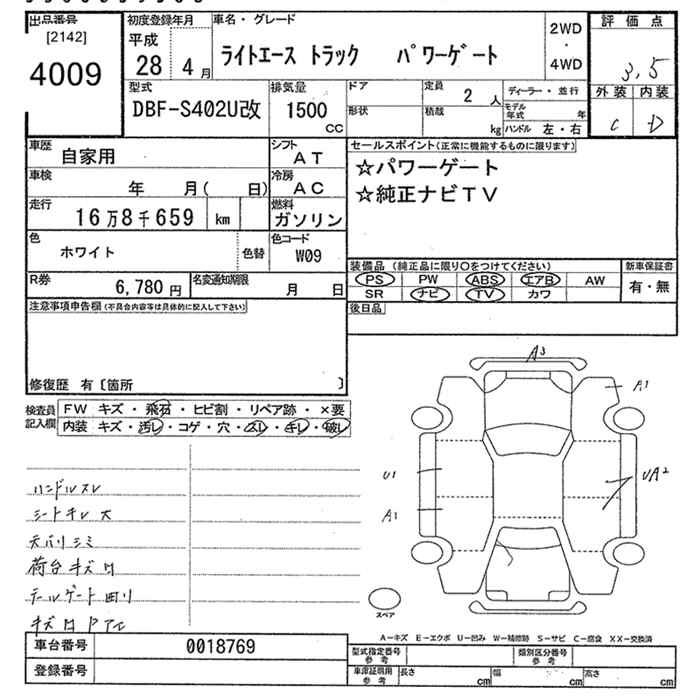 出品番号
[2142]
4009
初度登録年月
平成
28 4月
車名・グレード
ライトエース トラック パワーゲート
2WD
・
4WD
評価点
3.5
外装 内装
C D
型式
DBF-S402U改
排気量
1500
CC
ドア
形状
定員
2人
積載
kg
ディーラー・並行
モデル年式 年
ハンドル 左・右
車歴
自家用
シフト
AT
車検
年 月( 日)
冷房
AC
走行
16万8千659 km
燃料
ガソリン
色
ホワイト
色替
色コード
W09
R券
6,780円
名変通知期限
月 日
セールスポイント(正常に機能するものに限ります)
☆パワーゲート
☆純正ナビTV
装備品 (純正品に限り○をつけてください)
PS PW ABS エアB AW
SR ナビ TV カワ
新車保証書
有・無
後日品
注意事項申告欄(不具合内容等は具体的に記入して下さい)
修復歴 有〔箇所 〕
検査員記入欄
FW キズ・飛石・ヒビ割・リペア跡・×要
内装 キズ・汚レ・コゲ・穴・スレ・キレ・破レ
ハンドルスレ
シートキレ大
天バリシミ
荷台キズ凹
テールゲート凹
キズ凹
A3
A1
U1
A1
UA2
スペア
A-キズ E-エクボ U-凹み W-補修跡 S-サビ C-腐食 XX-交換済
車台番号
0018769
登録番号
型式指定番号
参考
類別区分番号
参考
車庫証明用
参考
長さ cm 幅 cm 高さ cm